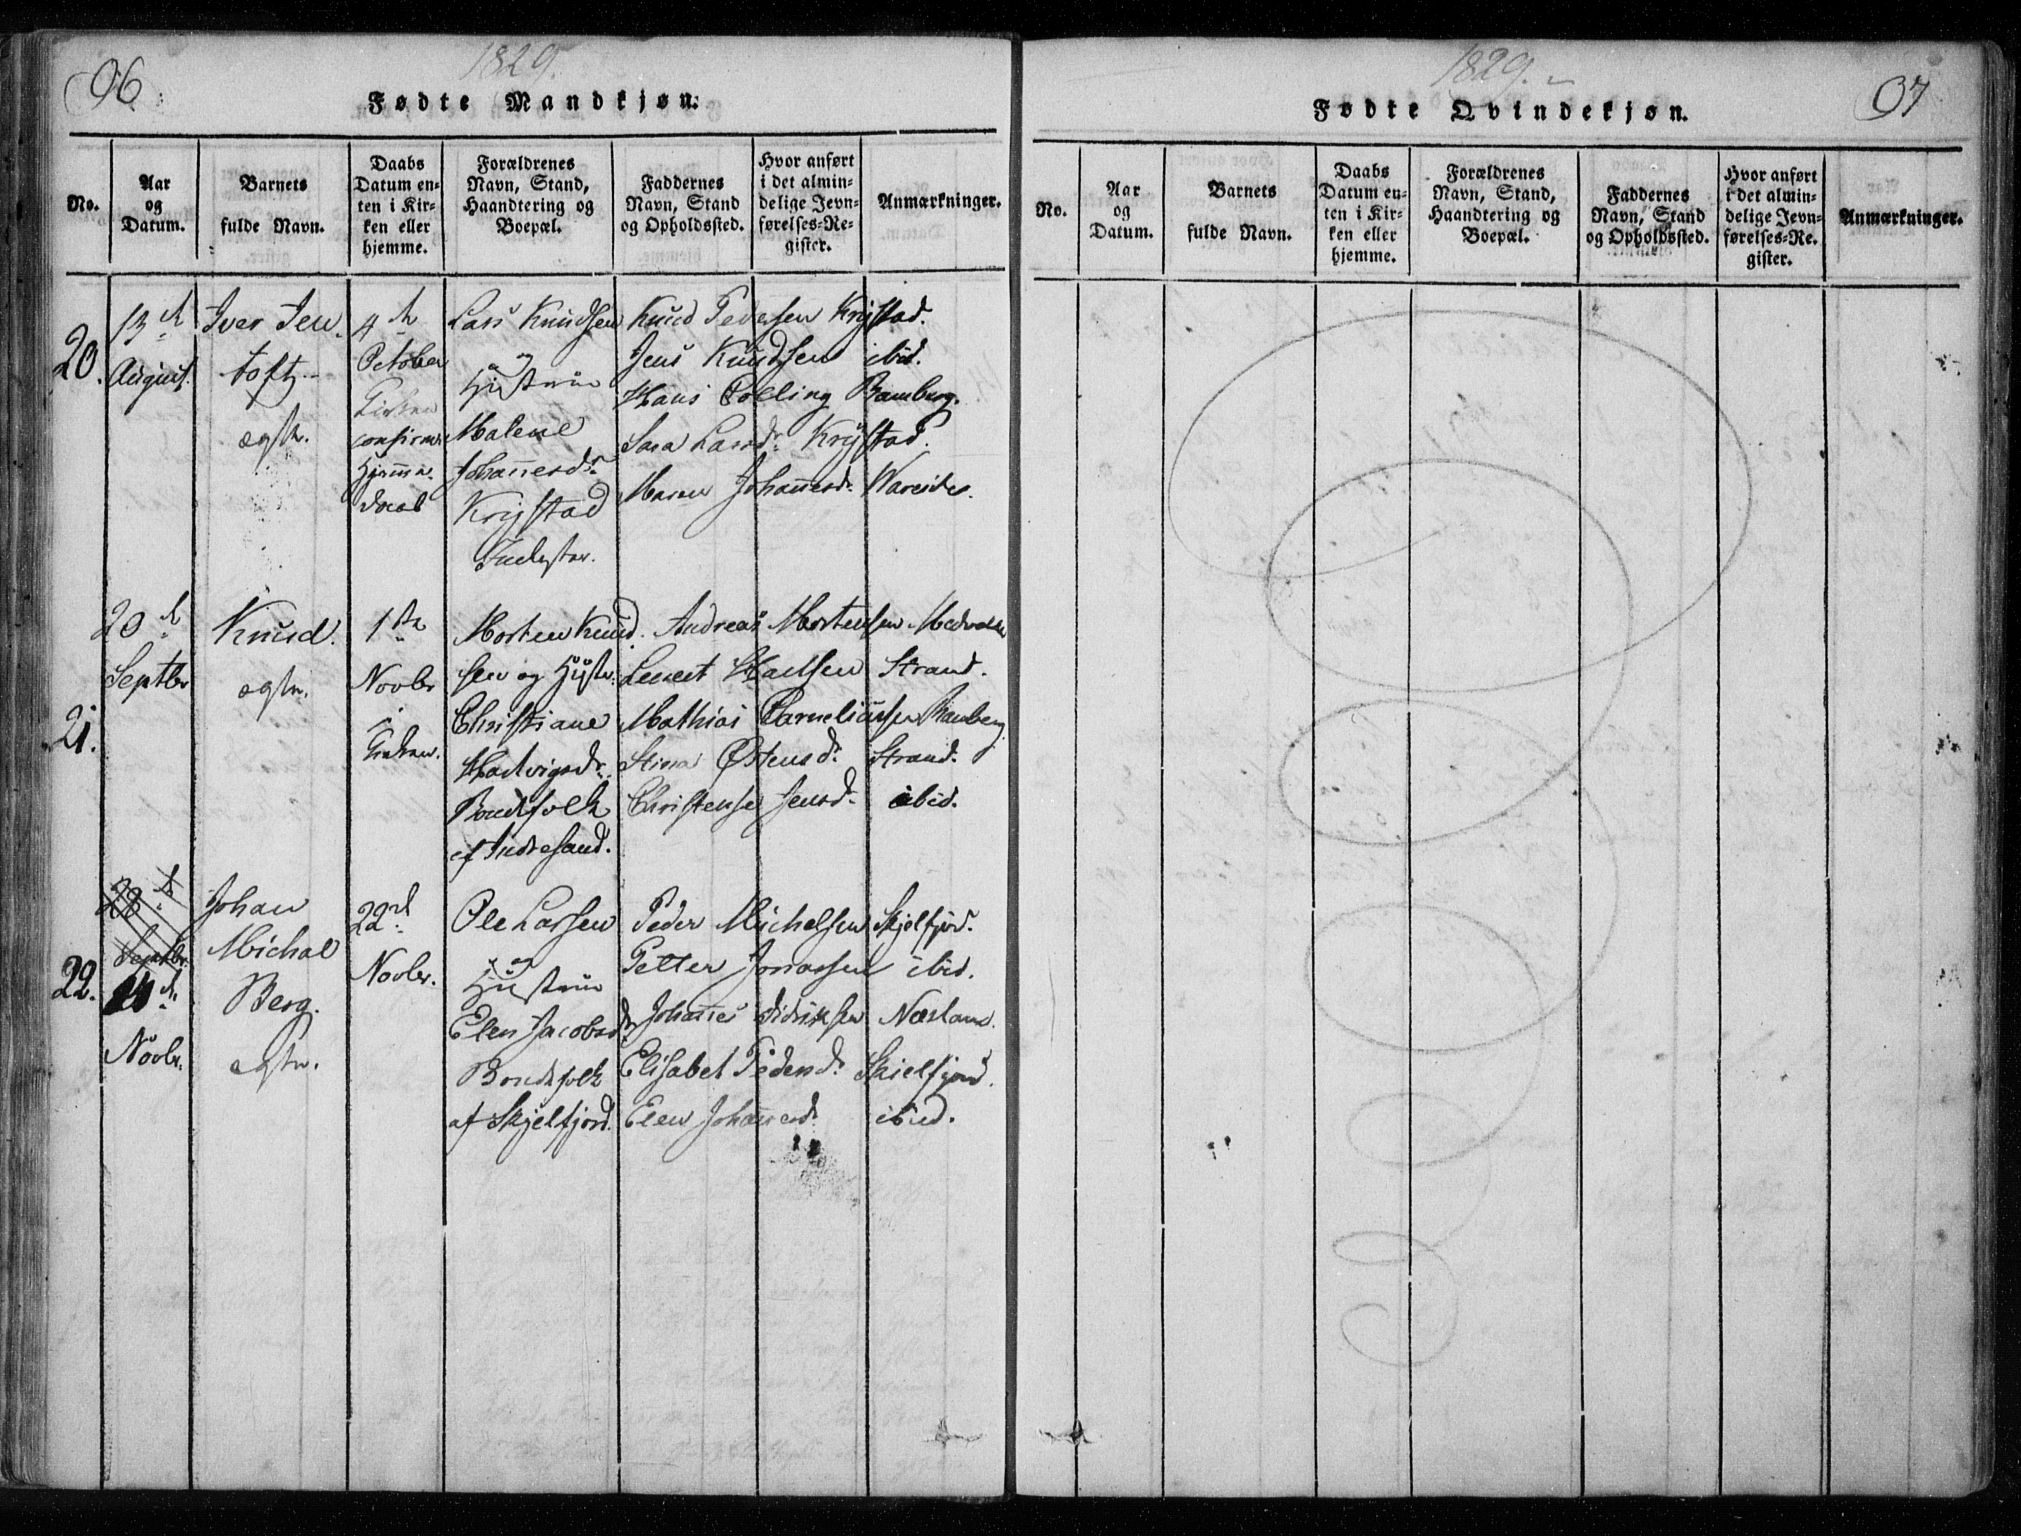 96
1829.
Fødte Mandkjøn.
No.
Aar og Datum.
Barnets fulde Navn.
Daabs Datum enten i Kirken eller hjemme.
Forældrenes Navn, Stand, Haandtering og Boepæl.
Faddernes Navn, Stand og Opholdssted.
Hvor anført i det almindelige Jevnførelses-Register.
Anmærkninger.
20.
13de
August
Iver Jen
toft
ægte.
4de
October
Kirken
confirm.
Hjemme
daab
Lars Knudsen
og
Hustrue
Malene
Johannesdr.
Krystad
Knud Pedersen Krystad.
Jens Knudsen ibid.
Hans Colling Ramberg.
Sara Larsdr. Krystad.
Maren Johannesdr. Wareide.
21.
20de
Septbr
Knud.
ægte.
1ste
Novbr
i
Kirken.
Morten Knud
sen og Hustr.
Christiane
Hartvigsdr.
Bondefolk
af Indresand.
Andreas Mortensen
Lenert Strand.
Mathias Corneliussen Ramberg
Stina Østensd. Strand.
Christense Jensd. ibid.
22.
28de
Septbr.
14de
Novbr.
Johan
Michal
Berg.
ægte.
22de
Novbr.
Ole Larsen
og
Hustrue
Elen Jacobsd
Bondefolk
af Skjelfjord.
Peder Michelsen Skjelfjord.
Petter Jonassen ibid.
Johannes Didriksen Næsland.
Elisabet Pedersd. Skielfjord.
Elen Johannesd. ibid.
1829.
Fødte Qvindekjøn.
97
No.
Aar og Datum.
Barnets fulde Navn.
Daabs Datum enten i Kirken eller hjemme.
Forældrenes Navn, Stand, Haandtering og Boepæl.
Faddernes Navn, Stand og Opholdssted.
Hvor anført i det almindelige Jevnførelses-Register.
Anmærkninger.